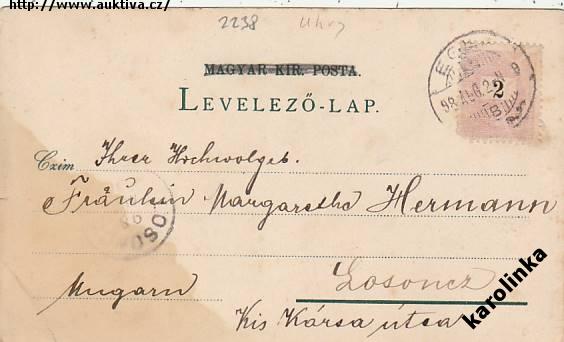 http://www.auktiva.cz/
2238 Uhry
MAGYAR KIR. POSTA.
LEVELEZŐ-LAP.
2
Czim Ihrer Hochwolgeb.
Fräulein Margarethe Hermann
Ungarn Losoncz
Kis Kársa útsa
karolinka